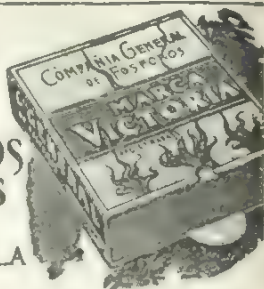 COMPAÑIA GENERAL
DE FOSFOROS
MARCA
VICTORIA
OS
S
LA